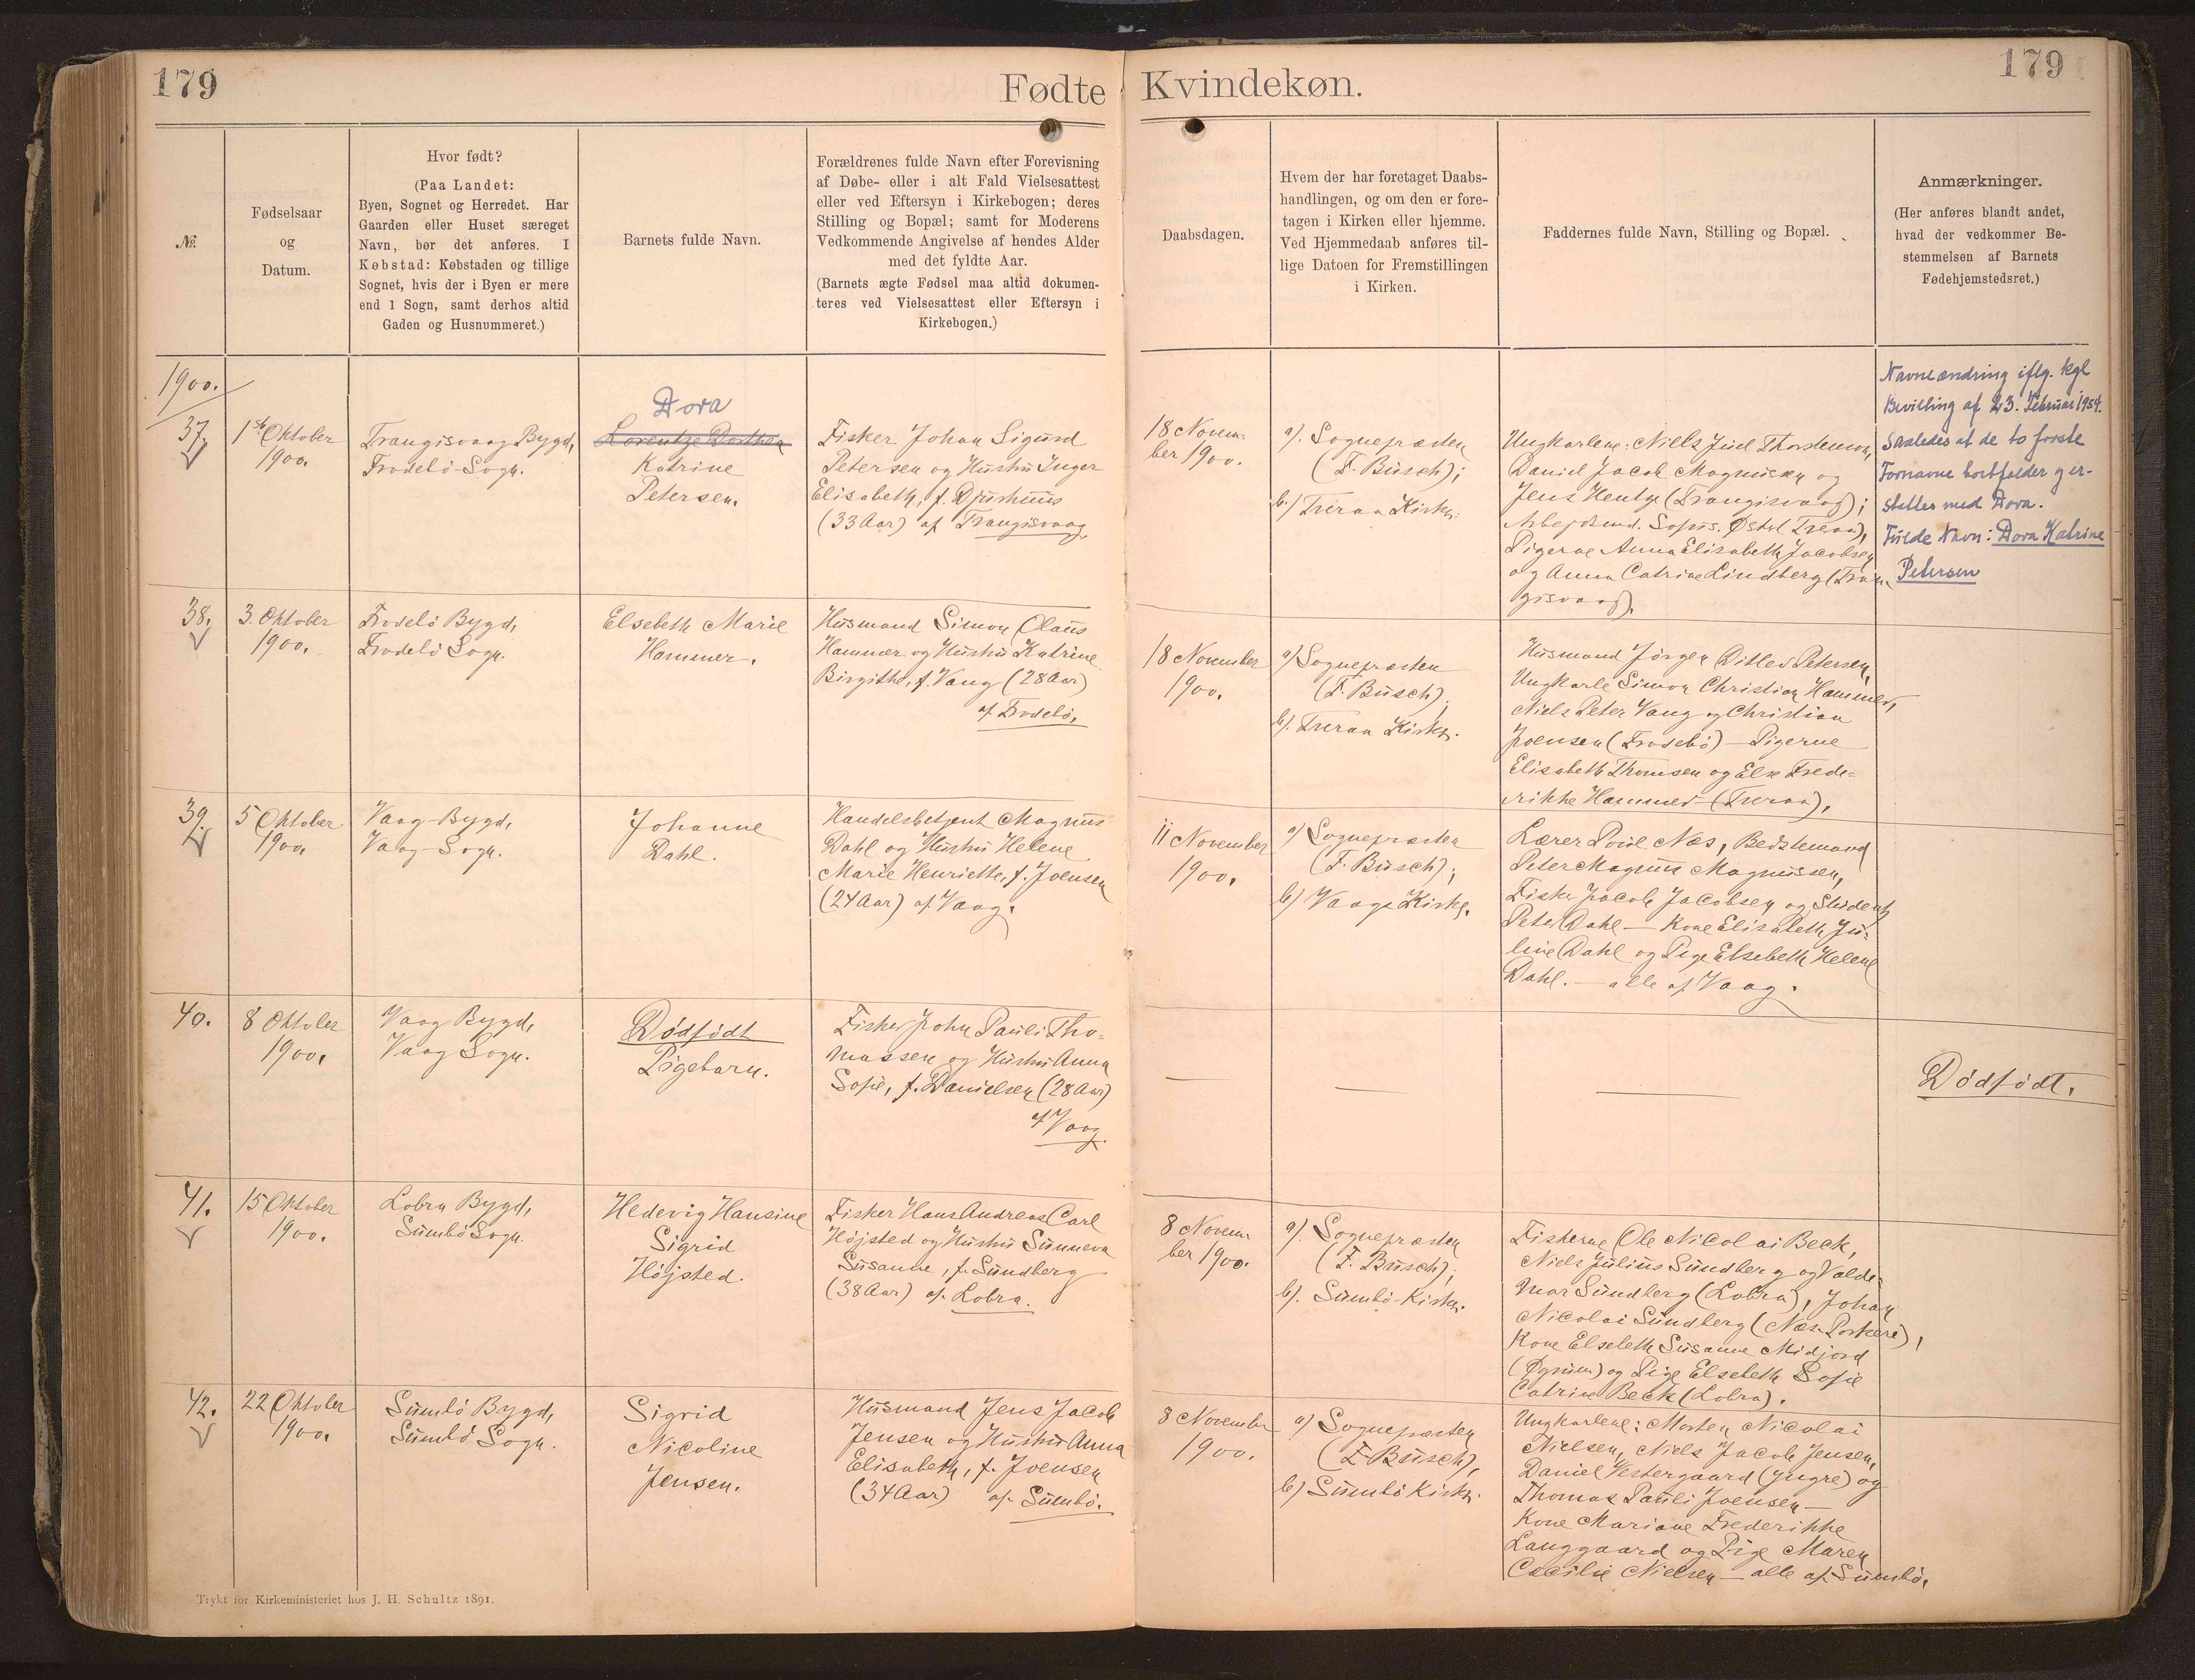 179
Fødte
Kvindekøn.
179
№
Fødselsaar
og
Datum.
Hvor født?
(Paa Landet:
Byen, Sognet og Herredet. Har
Gaarden eller Huset særeget
Navn, bør det anføres. I
Købstad: Købstaden og tillige
Sognet, hvis der i Byen er mere
end 1 Sogn, samt derhos altid
Gaden og Husnummeret.)
Barnets fulde Navn.
Forældrenes fulde Navn efter Forevisning
af Døbe- eller i alt Fald Vielsesattest
eller ved Eftersyn i Kirkebogen; deres
Stilling og Bopæl; samt for Moderens
Vedkommende Angivelse af hendes Alder
med det fyldte Aar.
(Barnets ægte Fødsel maa altid dokumen-
teres ved Vielsesattest eller Eftersyn i
Kirkebogen.)
Daabsdagen.
Hvem der har foretaget Daabs-
handlingen, og om den er fore-
tagen i Kirken eller hjemme.
Ved Hjemmedaab anføres til-
lige Datoen for Fremstillingen
i Kirken.
Faddernes fulde Navn, Stilling og Bopæl.
Anmærkninger.
(Her anføres blandt andet,
hvad der vedkommer Be-
stemmelsen af Barnets
Fødehjemstedsret.)
1900.
37.
1ste Oktober
1900.
Trangisvaag Bygd,
Frodebö Sogn.
Dora
Lorentze Dorthea
Katrine
Petersen.
Fisker Johan Sigurd
Petersen og Hustru Inger
Elisabeth, f. Djurhuus
(33 Aar) af Trangisvaag
18 Novem-
ber 1900.
a). Sognepræsten
(F. Busch);
b.) Tveraa Kirke.
Ungkarlene: Niels Juel Thordensen,
Daniel Jacob Magnusen og
Jens Hentze (Trangisvaag);
Arbejdsmd. Sofus Østrl (Tveraa),
Pigerne Anna Elisabeth Jacobsen
og Anna Catrine Lindberg (Tran-
gisvaag).
Navneændring iflg. kgl
Bevilling af 23. Februar 1954.
saaledes at de to første
Fornavne bortfalder og er-
stattes med Dora.
Fulde Navn: Dora Katrine
Petersen
38.
3. Oktober
1900.
Frodebö Bygd,
Frodebö Sogn.
Elsebeth Marie
Hammer.
Husmand Simon Olaus
Hammer og Hustru Katrine
Birgithe, f. Vang (28 Aar)
af Frodebö.
18 November
1900.
a) Sognepræsten
(F. Busch).
b). Tveraa Kirke.
Husmand Jörgen Ditlev Petersen,
Ungkarle Simon Christian Hammer,
Niels Peter Vang og Christian
Joensen (Frodebö) — Pigerne
Elisabeth Thomsen og Else Frede-
rikke Hammer (Tveraa),
39.
5 Oktober
1900.
Vaag-Bygd,
Vaag-Sogn.
Johanne
Dahl.
Handelsbetjent Magnus
Dahl og Hustru Helene
Marie Henriette, f. Joensen
(24 Aar) af Vaag.
11 November
1900.
a) Sognepræsten
(F. Busch);
b) Vaags Kirke.
Lærer Poul Næs, Bedstemand
Peter Magnus Magnussen,
Fisker Jacob Jacobsen og Student
Peter Dahl — Kone Elisabeth Ju-
line Dahl og Pige Elsebeth Helene
Dahl. — alle af Vaag.
40.
8 Oktober
1900.
Vaag Bygd,
Vaag Sogn.
Dødfødt
Pigebarn.
Fisker John Pauli Tho-
massen og Hustru Anna
Sofie, f. Danielsen (28 Aar)
af Vaag.
Dødfødt.
41.
15 Oktober
1900.
Lobra Bygd,
Sumbö Sogn.
Hedevig Hansine
Sigrid
Højsted.
Fisker Hans Andreas Carl
Højsted og Hustru Sunneva
Susanne, f. Sundberg
(38 Aar) af Lobra.
8 Novem-
ber 1900.
a). Sognepræsten
(F. Busch);
b). Sumbö-Kirke.
Fiskerne Ole Nicolai Beck,
Niels Julius Sundberg og Valde-
mar Sundberg (Lobra), Johan
Nicolai Sundberg (Næs-Porkeri),
Kone Elsebeth Susanne Midjord
(Øgnum) og Pige Elsebeth Sofie
Catrine Beck (Lobra).
42.
22 Oktober
1900.
Sumbö Bygd,
Sumbö Sogn.
Sigrid
Nicoline
Jensen.
Husmand Jens Jacob
Jensen og Hustru Anna
Elisabeth, f. Joensen
(34 Aar) af Sumbö.
8 November
1900.
a) Sognepræsten
(F. Busch),
b) Sumbö Kirke.
Ungkarlene: Morten Nicolai
Nielsen, Niels Jacob Jensen,
Daniel Vestergaard (yngre) og
Thomas Pauli Joensen —
Kone Mariane Frederikke
Langgaard og Pige Maren
Cæcilie Nielsen — alle af Sumbö.
Trykt for Kirkeministeriet hos J. H. Schultz 1891.